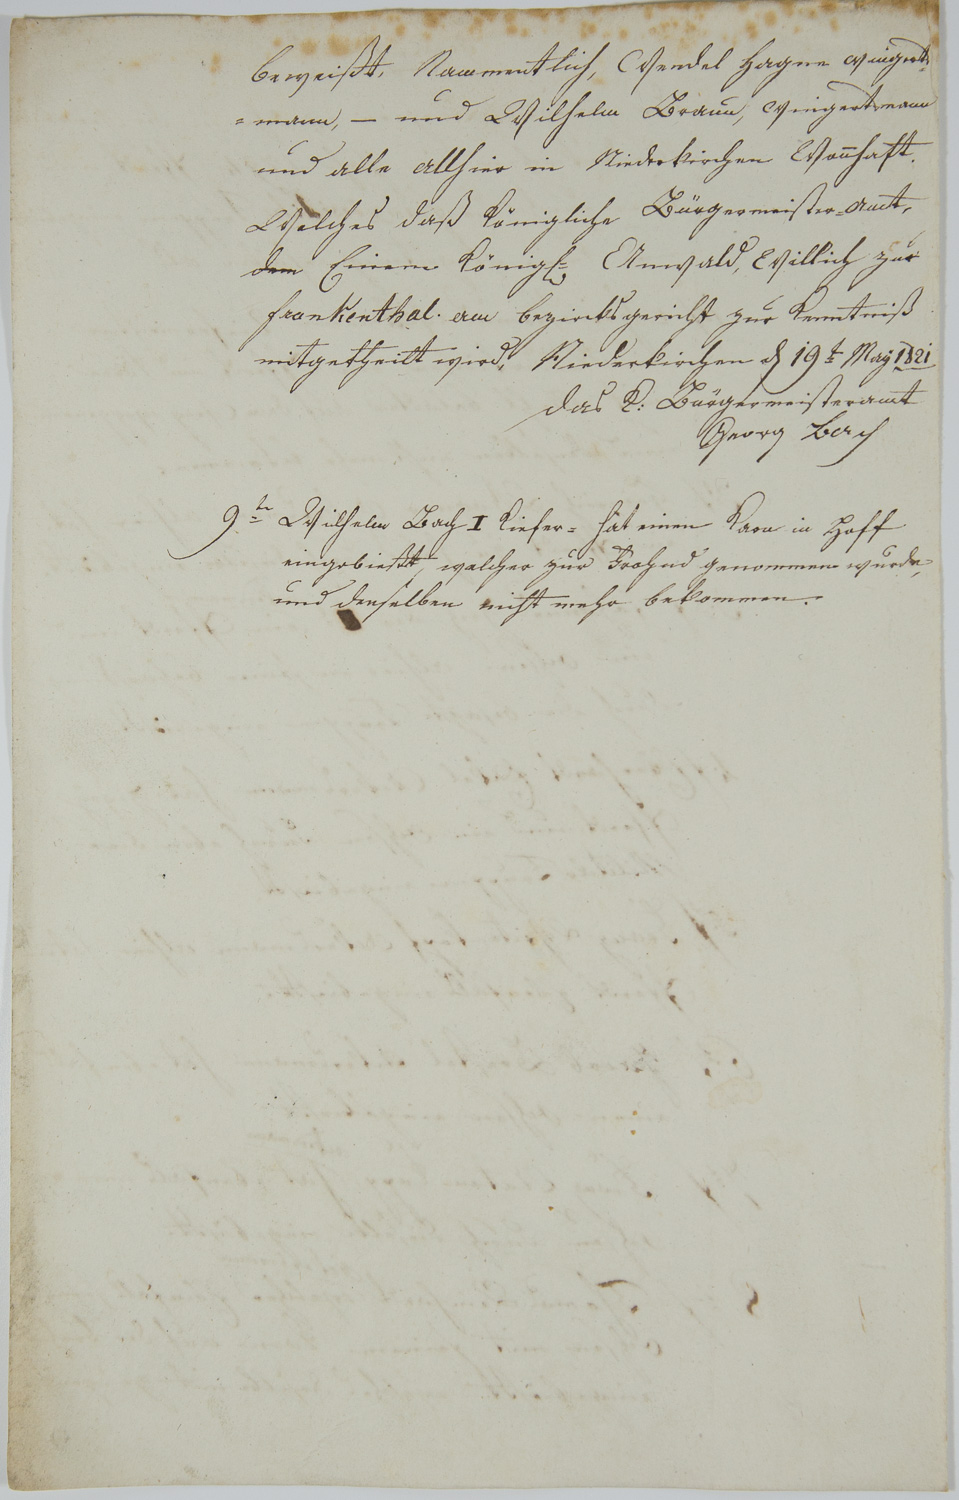 beweißt, Nammentlich, Wendel Hagne Wingerts-
=mann, — und Wilhelm Braun, Wingertsmann
und alle allhier in Niederkirchen Wonhaft.
Welches daß Königliche Bürgermeister-Amt,
dem Einem Königl: Anwald, Willich zur
Frankenthal. am bezircksgericht zur Kenntniß
mitgetheilt wird, Niederkirchen d 19t May 1821
das K: Bürgermeisteramt
Georg Bach
9te Wilhelm Bach I Kiefer= hat einen Karn in Hoff
eingebießt, welcher zur Frohnd genommen wurde,
und denselben nicht mehr bekommen.